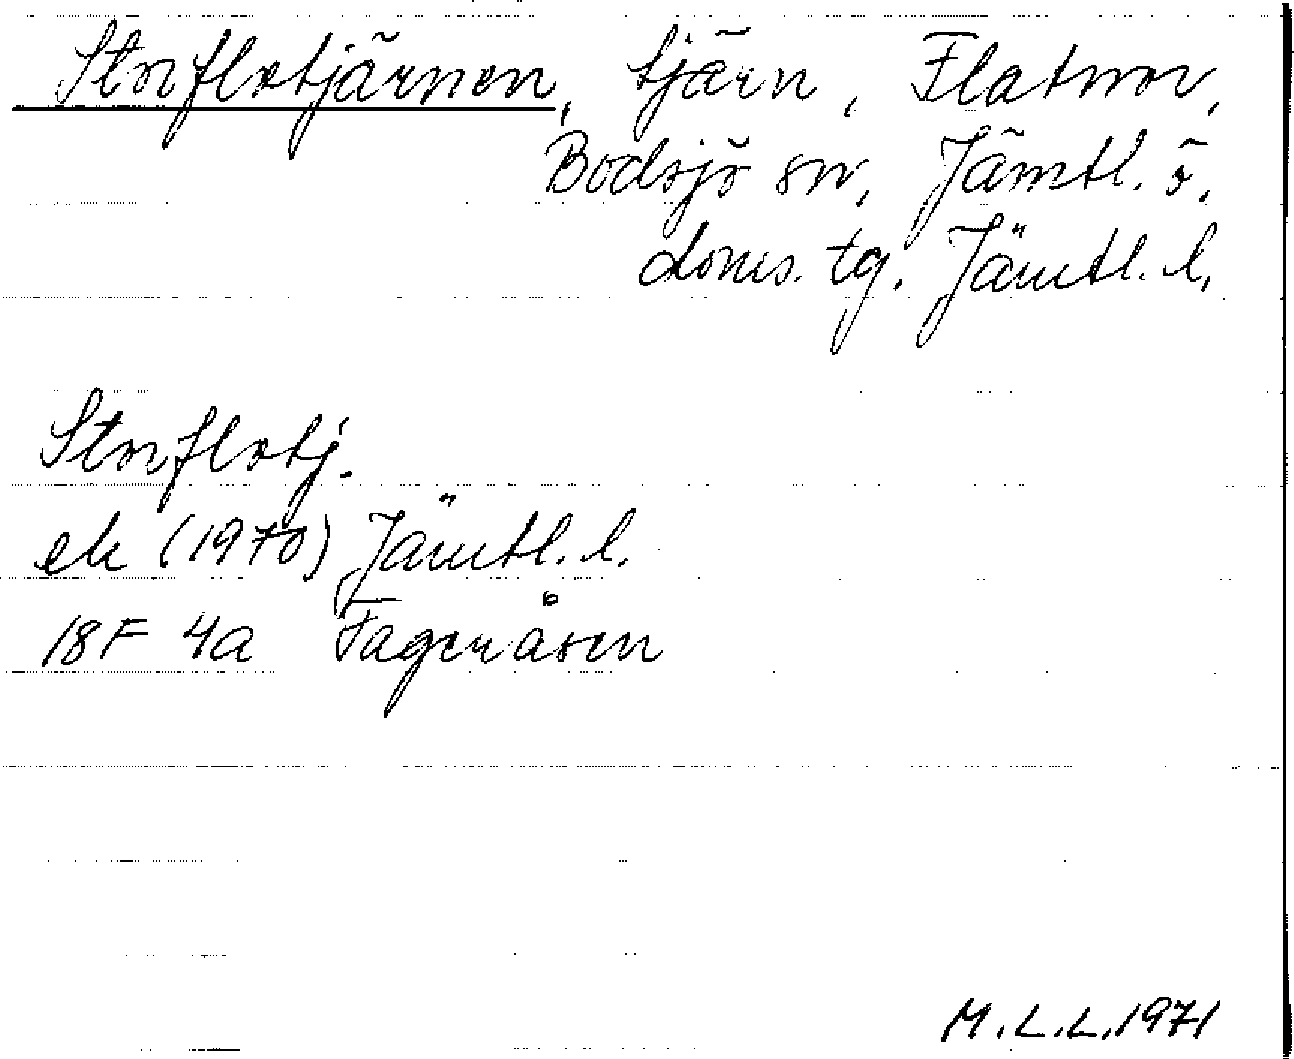 Storflotjärnen, tjärn, Flatnor,
Bodsjö sn, Jämtl. ö.
doms. tg. Jämtl. l.
Storflotj.
ek (1970) Jämtl. l.
18F 4a Fageråsen
M.L.L. 1971